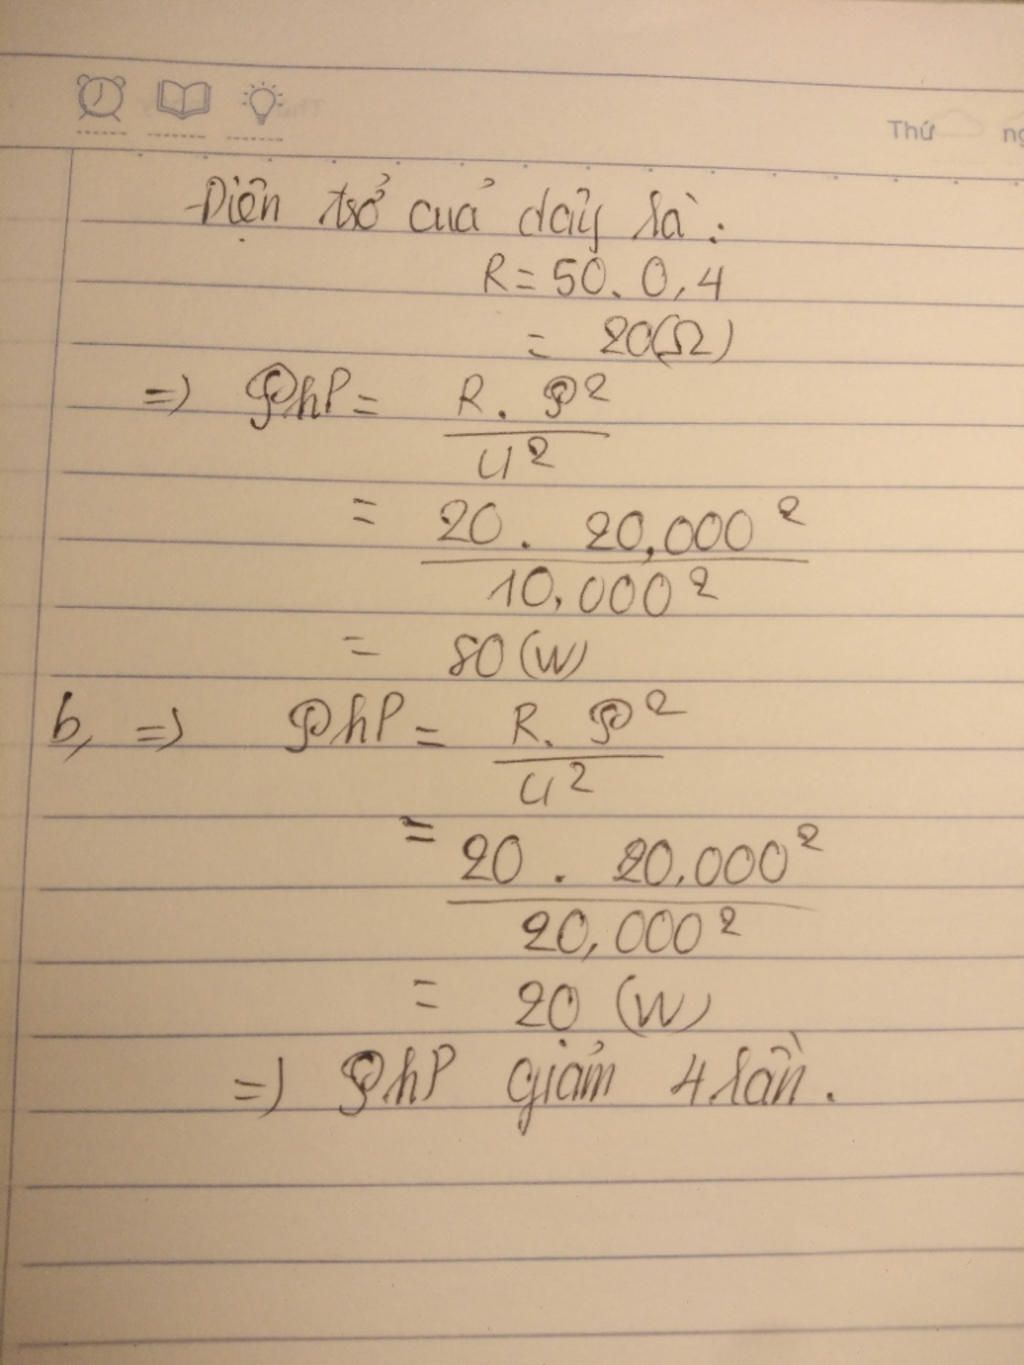 Thứ
Điện trở của dây là:
R = 50. 0,4
= 20(Ω)
=> 𝒫hP = R. 𝒫² / U²
= 20. 20,000² / 10,000²
= 80 (W)
b, => 𝒫hP = R. 𝒫² / U²
= 20. 20.000² / 20,000²
= 20 (W)
=> 𝒫hP giảm 4 lần.